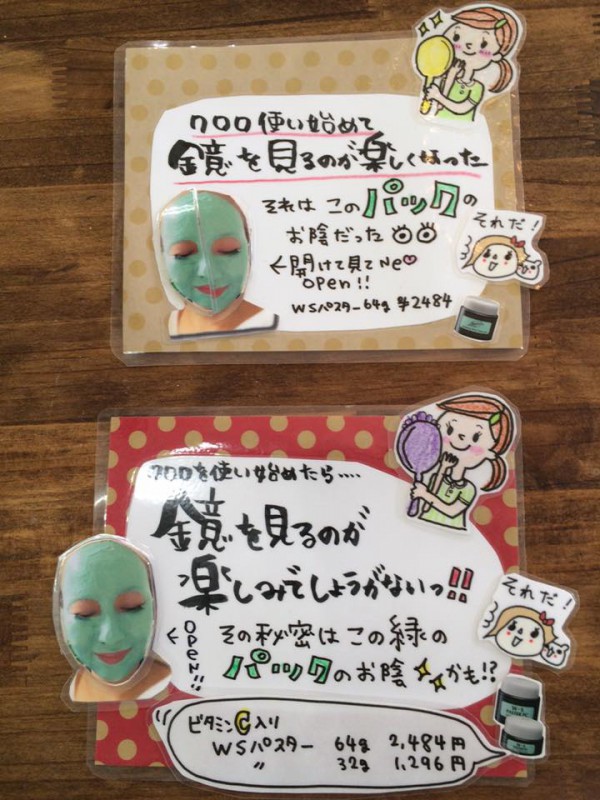 クロロ使い始めて
鏡を見るのが楽しくなった
それは このパックの
お陰だった
←開けて見てNe♡
OPEN!!
WSパスター64g ¥2484
それだ!
クロロを使い始めたら‥‥
鏡を見るのが
楽しみでしょうがないっ!!
←OPEN!!
その秘密はこの緑の
パックのお陰かも!?
それだ!
ビタミンC入り
WSパスター 64g 2,484円
〃 32g 1,296円